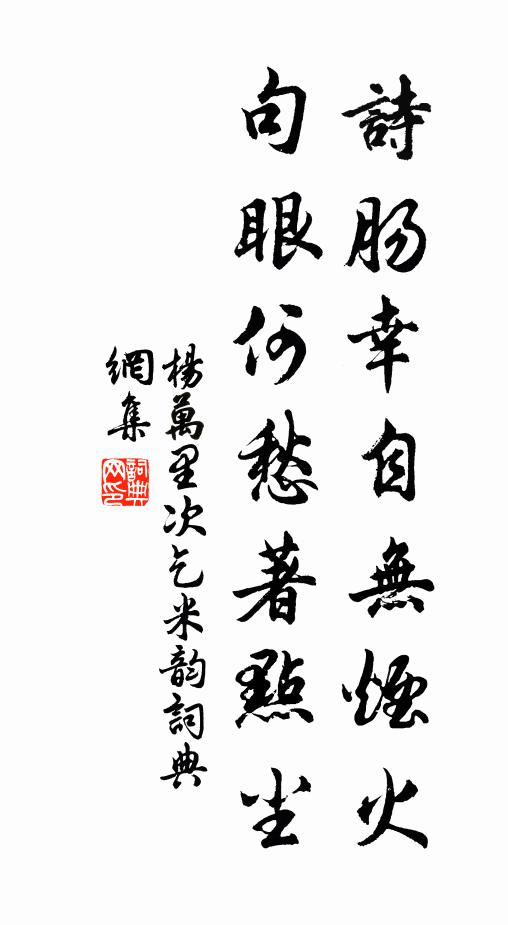 詩腸幸自無煙火
句眼何愁著點尘
楊萬里次乞米韵詞典
網集
詞典网印